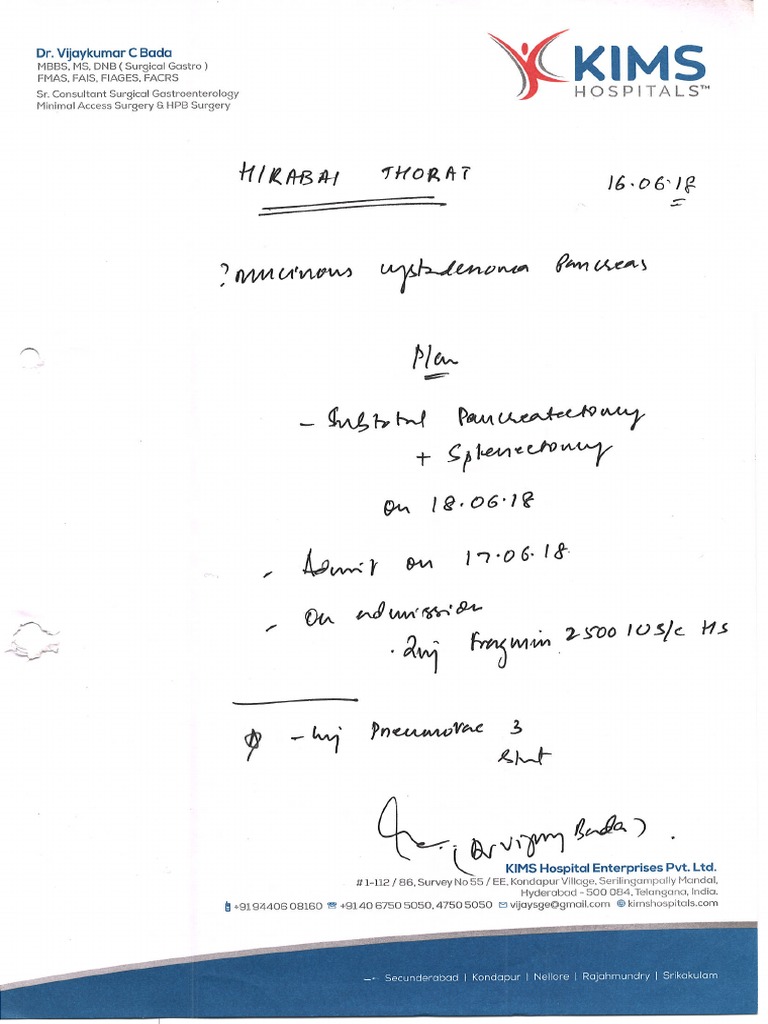 Dr. Vijaykumar C Bada
MBBS, MS, DNB ( Surgical Gastro )
FMAS, FAIS, FIAGES, FACRS
Sr. Consultant Surgical Gastroenterology
Minimal Access Surgery & HPB Surgery
KIMS
HOSPITALS™
HIRABAI THORAT
16.06.18
? mucinous cystadenoma Pancreas
Plan
- Subtotal Pancreatectomy
+ Splenectomy
on 18.06.18
- Admit on 17.06.18
- On admission
. Inj Fragmin 2500 IU S/c HS
- Inj Pneumovac
Stat
(Dr Vijay Bada)
KIMS Hospital Enterprises Pvt. Ltd.
# 1-112 / 86, Survey No 55 / EE, Kondapur Village, Serilingampally Mandal,
Hyderabad - 500 084, Telangana, India.
+91 94406 08160 +91 40 6750 5050, 4750 5050 vijaysge@gmail.com kimshospitals.com
Secunderabad | Kondapur | Nellore | Rajahmundry | Srikakulam